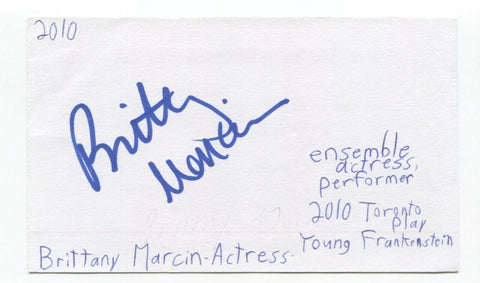 2010
Britty
Marcin
ensemble
actress,
performer
2010 Toronto
play
Young Frankenstein
Brittany Marcin-Actress-